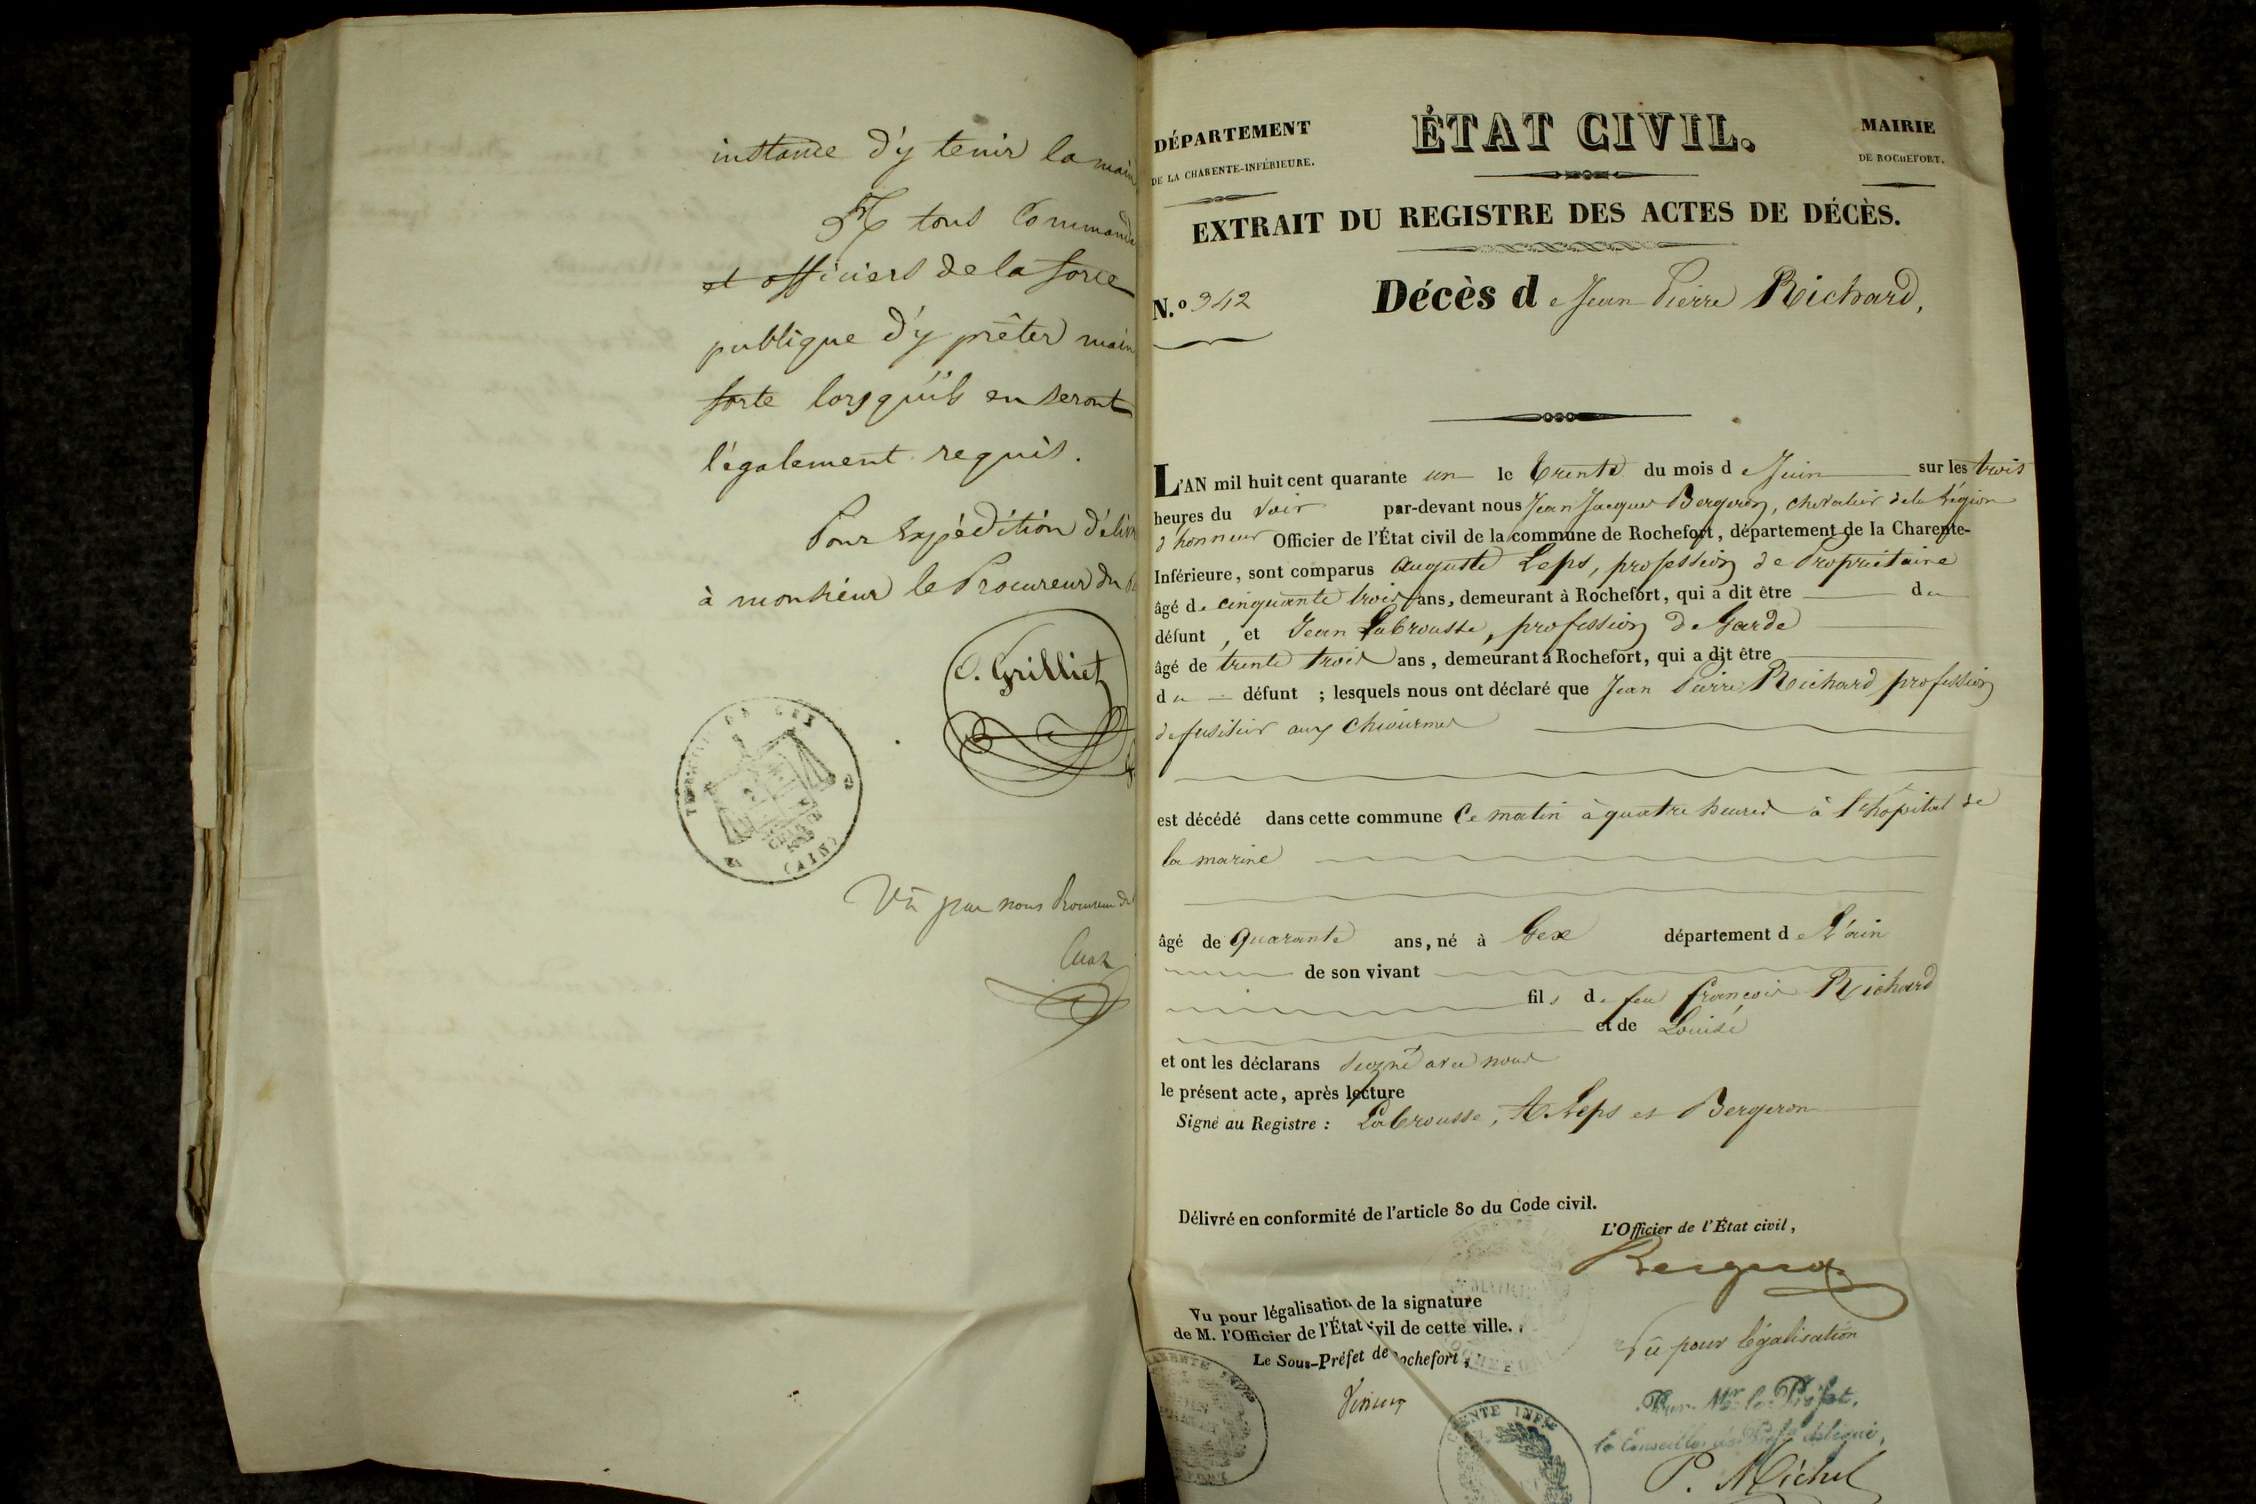 instance d'y tenir la main
A tous Commanda
et officiers de la force
publique d'y prêter main
forte lorsqu'ils en seront
légalement requis.
Pour Expédition déliv
à monsieur le Procureur du
C. Grilliet
TRIBUNAL DE GEX
(AIN)
Vu par nous Procureur du
Cuaz
DÉPARTEMENT
DE LA CHARENTE-INFÉRIEURE.
ÉTAT CIVIL.
MAIRIE
DE ROCHEFORT.
EXTRAIT DU REGISTRE DES ACTES DE DÉCÈS.
N.o 342
Décès de Jean Pierre Richard,
L'AN mil huit cent quarante un le trente du mois de Juin sur les trois
heures du soir par-devant nous Jean Jacques Bergeron, chevalier de la Légion
d'honneur Officier de l'État civil de la commune de Rochefort, département de la Charente-
Inférieure, sont comparus Auguste Leps, profession de Propriétaire
âgé de cinquante trois ans, demeurant à Rochefort, qui a dit être du
défunt, et Jean Labrousse, profession de Garde
âgé de trente trois ans, demeurant à Rochefort, qui a dit être
du défunt ; lesquels nous ont déclaré que Jean Pierre Richard profession
de fusilier aux Chiourmes
est décédé dans cette commune Ce matin à quatre heures à l'hôpital de
la marine
âgé de quarante ans, né à Gex département de L'ain
de son vivant
fils de feu françois Richard
et de Louise
et ont les déclarans signé avec nous
le présent acte, après lecture
Signé au Registre : Labrousse, A. Leps et Bergeron
Délivré en conformité de l'article 80 du Code civil.
L'Officier de l'État civil,
Bergeron
Vu pour légalisation de la signature
de M. l'Officier de l'État civil de cette ville.
Le Sous-Préfet de Rochefort,
Vu pour légalisation
Pour Mr. le Préfet,
le Conseiller de Préfre délégué,
P. Michel
CHARENTE INFRE
CHARENTE INFRE